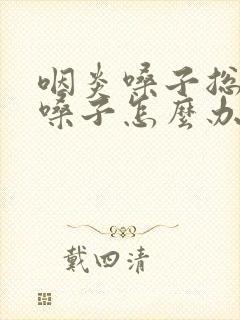 咽炎嗓子总
嗓子怎麼办
戴四清